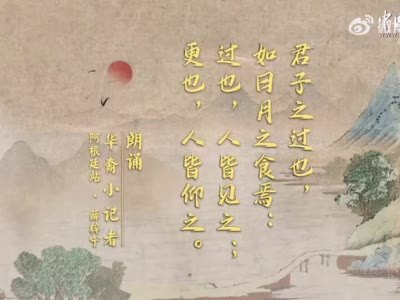 君子之过也，
如日月之食焉：
过也，人皆见之；
更也，人皆仰之。
朗诵
华裔小记者